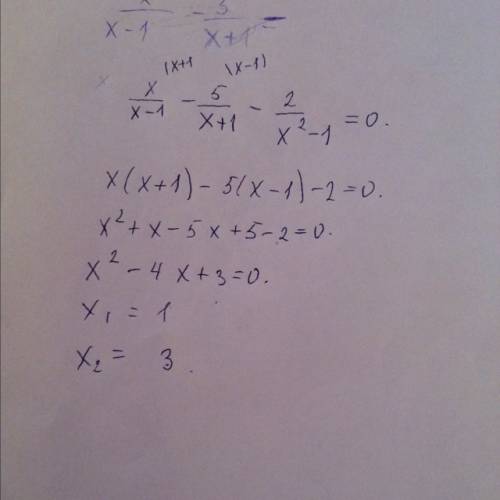 x/(x-1) - 5/(x+1) -
(x+1 \x-1)
x/(x-1) - 5/(x+1) - 2/(x²-1) = 0.
x(x+1) - 5(x-1) - 2 = 0.
x² + x - 5x + 5 - 2 = 0.
x² - 4x + 3 = 0.
x₁ = 1
x₂ = 3.